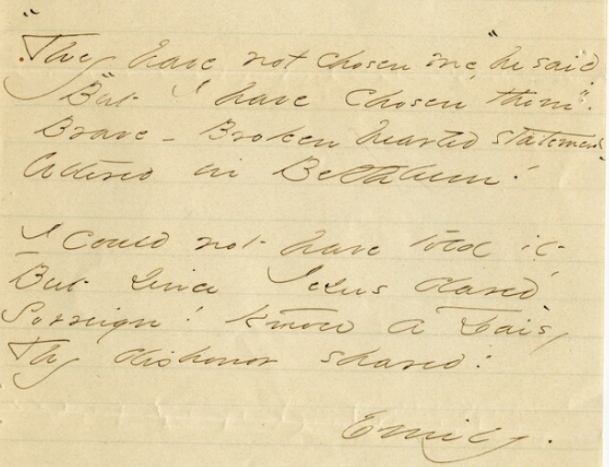 "They have not chosen me," he said,
"But I have chosen them".
Brave - Broken hearted statement
Uttered in Bethleem!
I could not have told it,
But since Jesus dared,
Sovreign! Know a Daisy
Thy dishonor shared!
Emily.